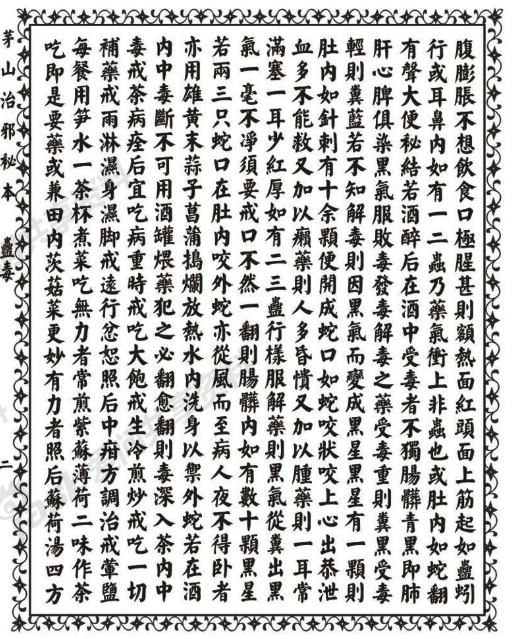 茅山治邪秘本
蠱毒
二
腹膨脹不想飲食口極腥甚則額熱面紅頭面上筋起如蠱蚓
行或耳鼻內如有一二蟲乃藥氣衝上非蟲也或肚內如蛇翻
有聲大便秘結若酒醉后在酒中受毒者不獨腸髒青黑即肺
肝心脾俱染黑氣服敗毒發毒解毒之藥受毒重則糞黑受毒
輕則糞藍若不知解毒則因黑氣而變成黑星黑星有一顆則
肚內如針刺有十余顆便開成蛇口如蛇咬狀咬上心出恭泄
血多不能救又加以癩藥則人多昏憒又加以腫藥則一耳常
滿塞一耳少紅厚如有二三蠱行樣服解藥則黑氣從糞出黑
氣一毫不凈須要戒口不然一翻則腸髒內如有數十顆黑星
若兩三只蛇口在肚內咬外蛇亦從風而至病人夜不得卧者
亦用雄黃末蒜子菖蒲搗爛放熱水內洗身以禦外蛇若在酒
內中毒斷不可用酒罐煨藥犯之必翻愈翻則毒深入茶內中
毒戒茶病痊后宜吃病重時戒吃大飽戒生冷煎炒戒吃一切
補藥戒雨淋濕身濕脚戒遠行忿恕照后中疳方調治戒葷鹽
每餐用笋水一茶杯煮菜吃無力者常煎紫蘇薄荷二味作茶
吃即是要藥或兼田內茨菇菜更妙有力者照后蘇荷湯四方